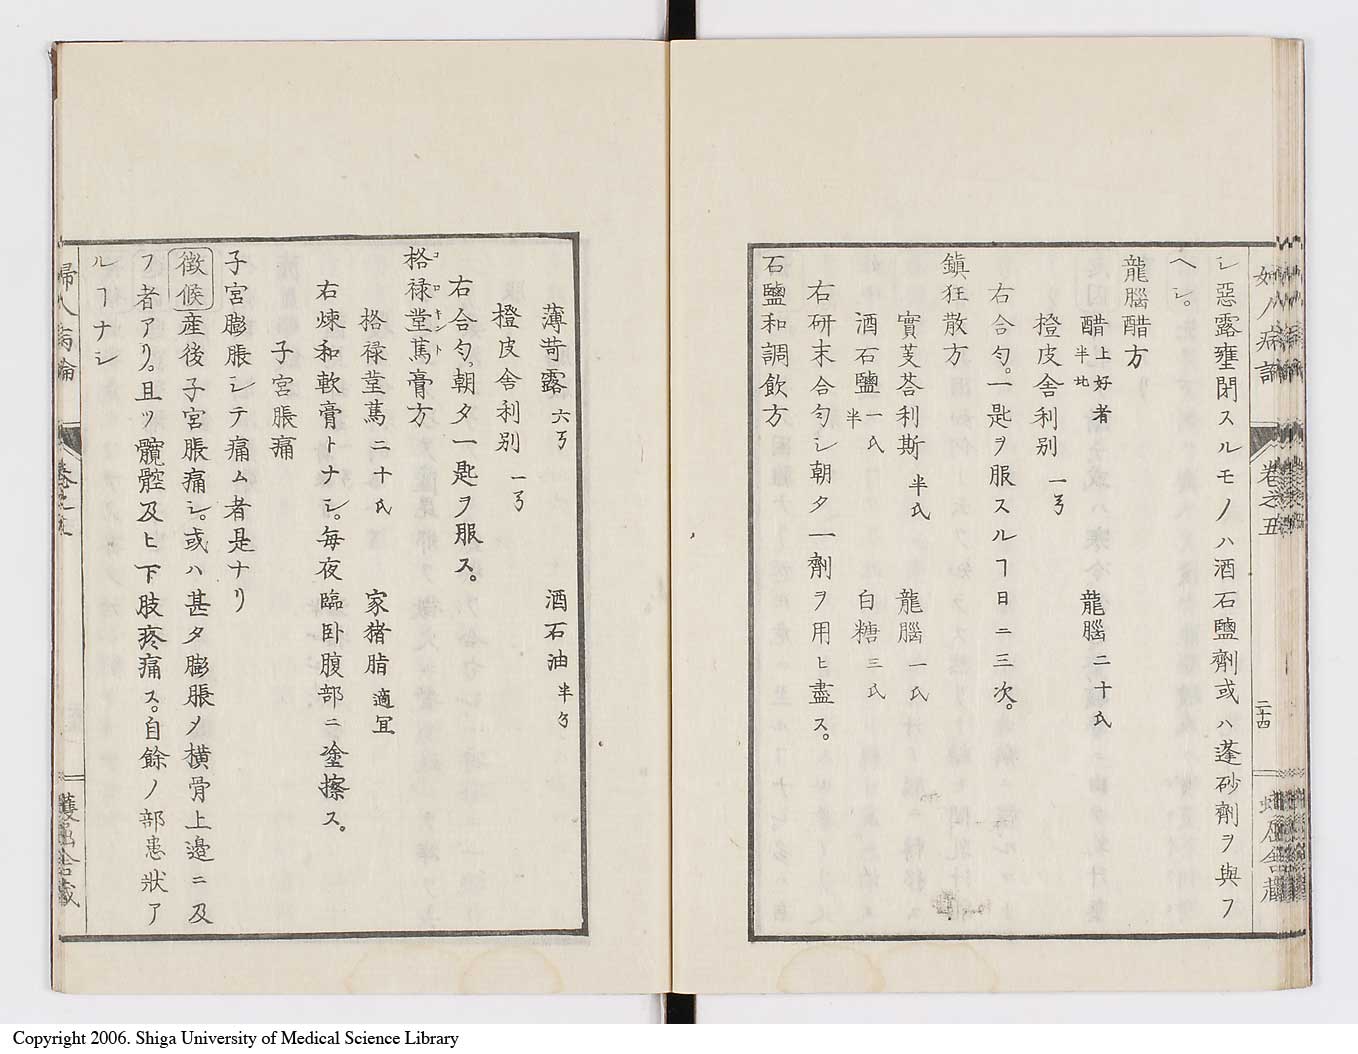 シ惡露壅閉スルモノハ酒石鹽劑或ハ蓬砂劑ヲ與フ
ヘシ。
龍腦醋方
醋 上好者 半 龍腦 二十氏
橙皮舎利别 一
右合匀。一匙ヲ服スルヿ日ニ三次。
鎮狂散方
實芰荅利斯 半氏 龍腦 一氏
酒石鹽 一氏半 白糖 三氏
右研末合匀シ朝夕一劑ヲ用ヒ盡ス。
石鹽和調飲方
卷之五
二十四
薄荷露 六 酒石油 半
橙皮舎利别 一
右合匀。朝夕一匙ヲ服ス。
格禄菫蔫膏方
コロキント
格禄菫蔫 二十氏 家猪脂 適冝
右煉和軟膏トナシ。毎夜臨卧腹部ニ塗擦ス。
子宮脹痛
子宮膨脹シテ痛ム者是ナリ
徴候 産後子宮脹痛シ。或ハ甚タ膨脹メ横骨上邉ニ及
フ者アリ。且ツ髖髎及ヒ下肢疼痛ス。自餘ノ部患狀ア
ルヿナシ
婦人病論
Copyright 2006. Shiga University of Medical Science Library